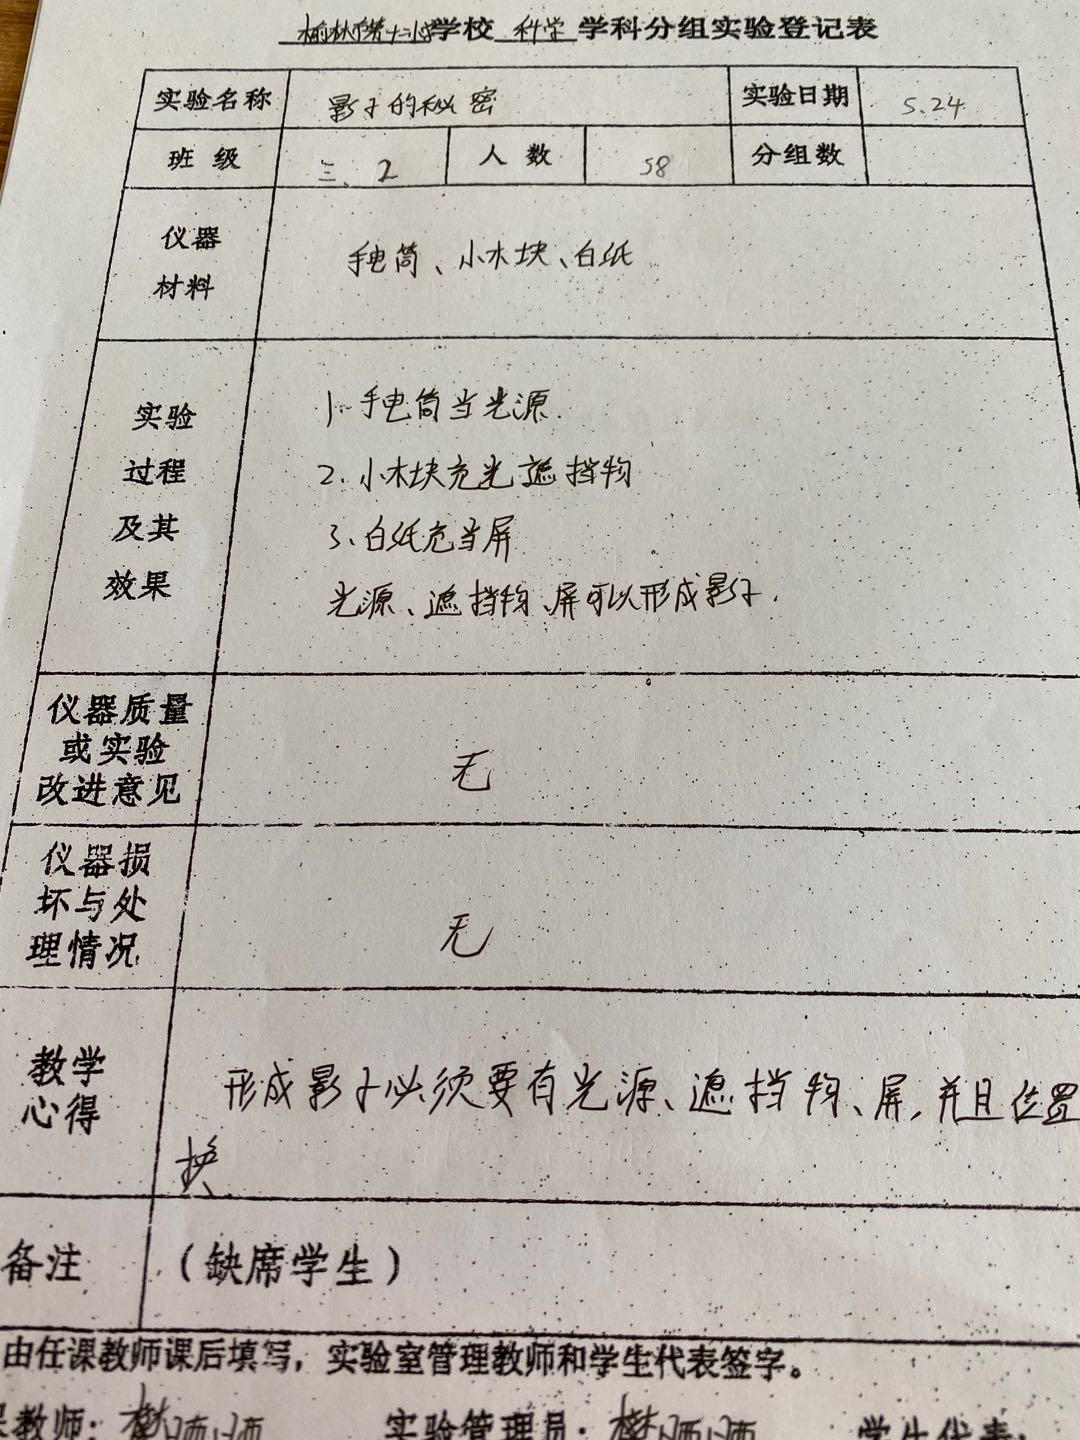 榆林市第十二小学校 科学 学科分组实验登记表
实验名称 影子的秘密 实验日期 5.24
班级 三.2 人数 58 分组数
仪器
材料
手电筒、小木块、白纸
实验
过程
及其
效果
1. 手电筒当光源.
2. 小木块充光遮挡物
3. 白纸充当屏
光源、遮挡物、屏可以形成影子.
仪器质量
或实验
改进意见
无
仪器损
坏与处
理情况
无
教学
心得
形成影子必须要有光源、遮挡物、屏,并且位置
换
备注 (缺席学生)
由任课教师课后填写,实验室管理教师和学生代表签字。
教师: 实验管理员: 学生代表: